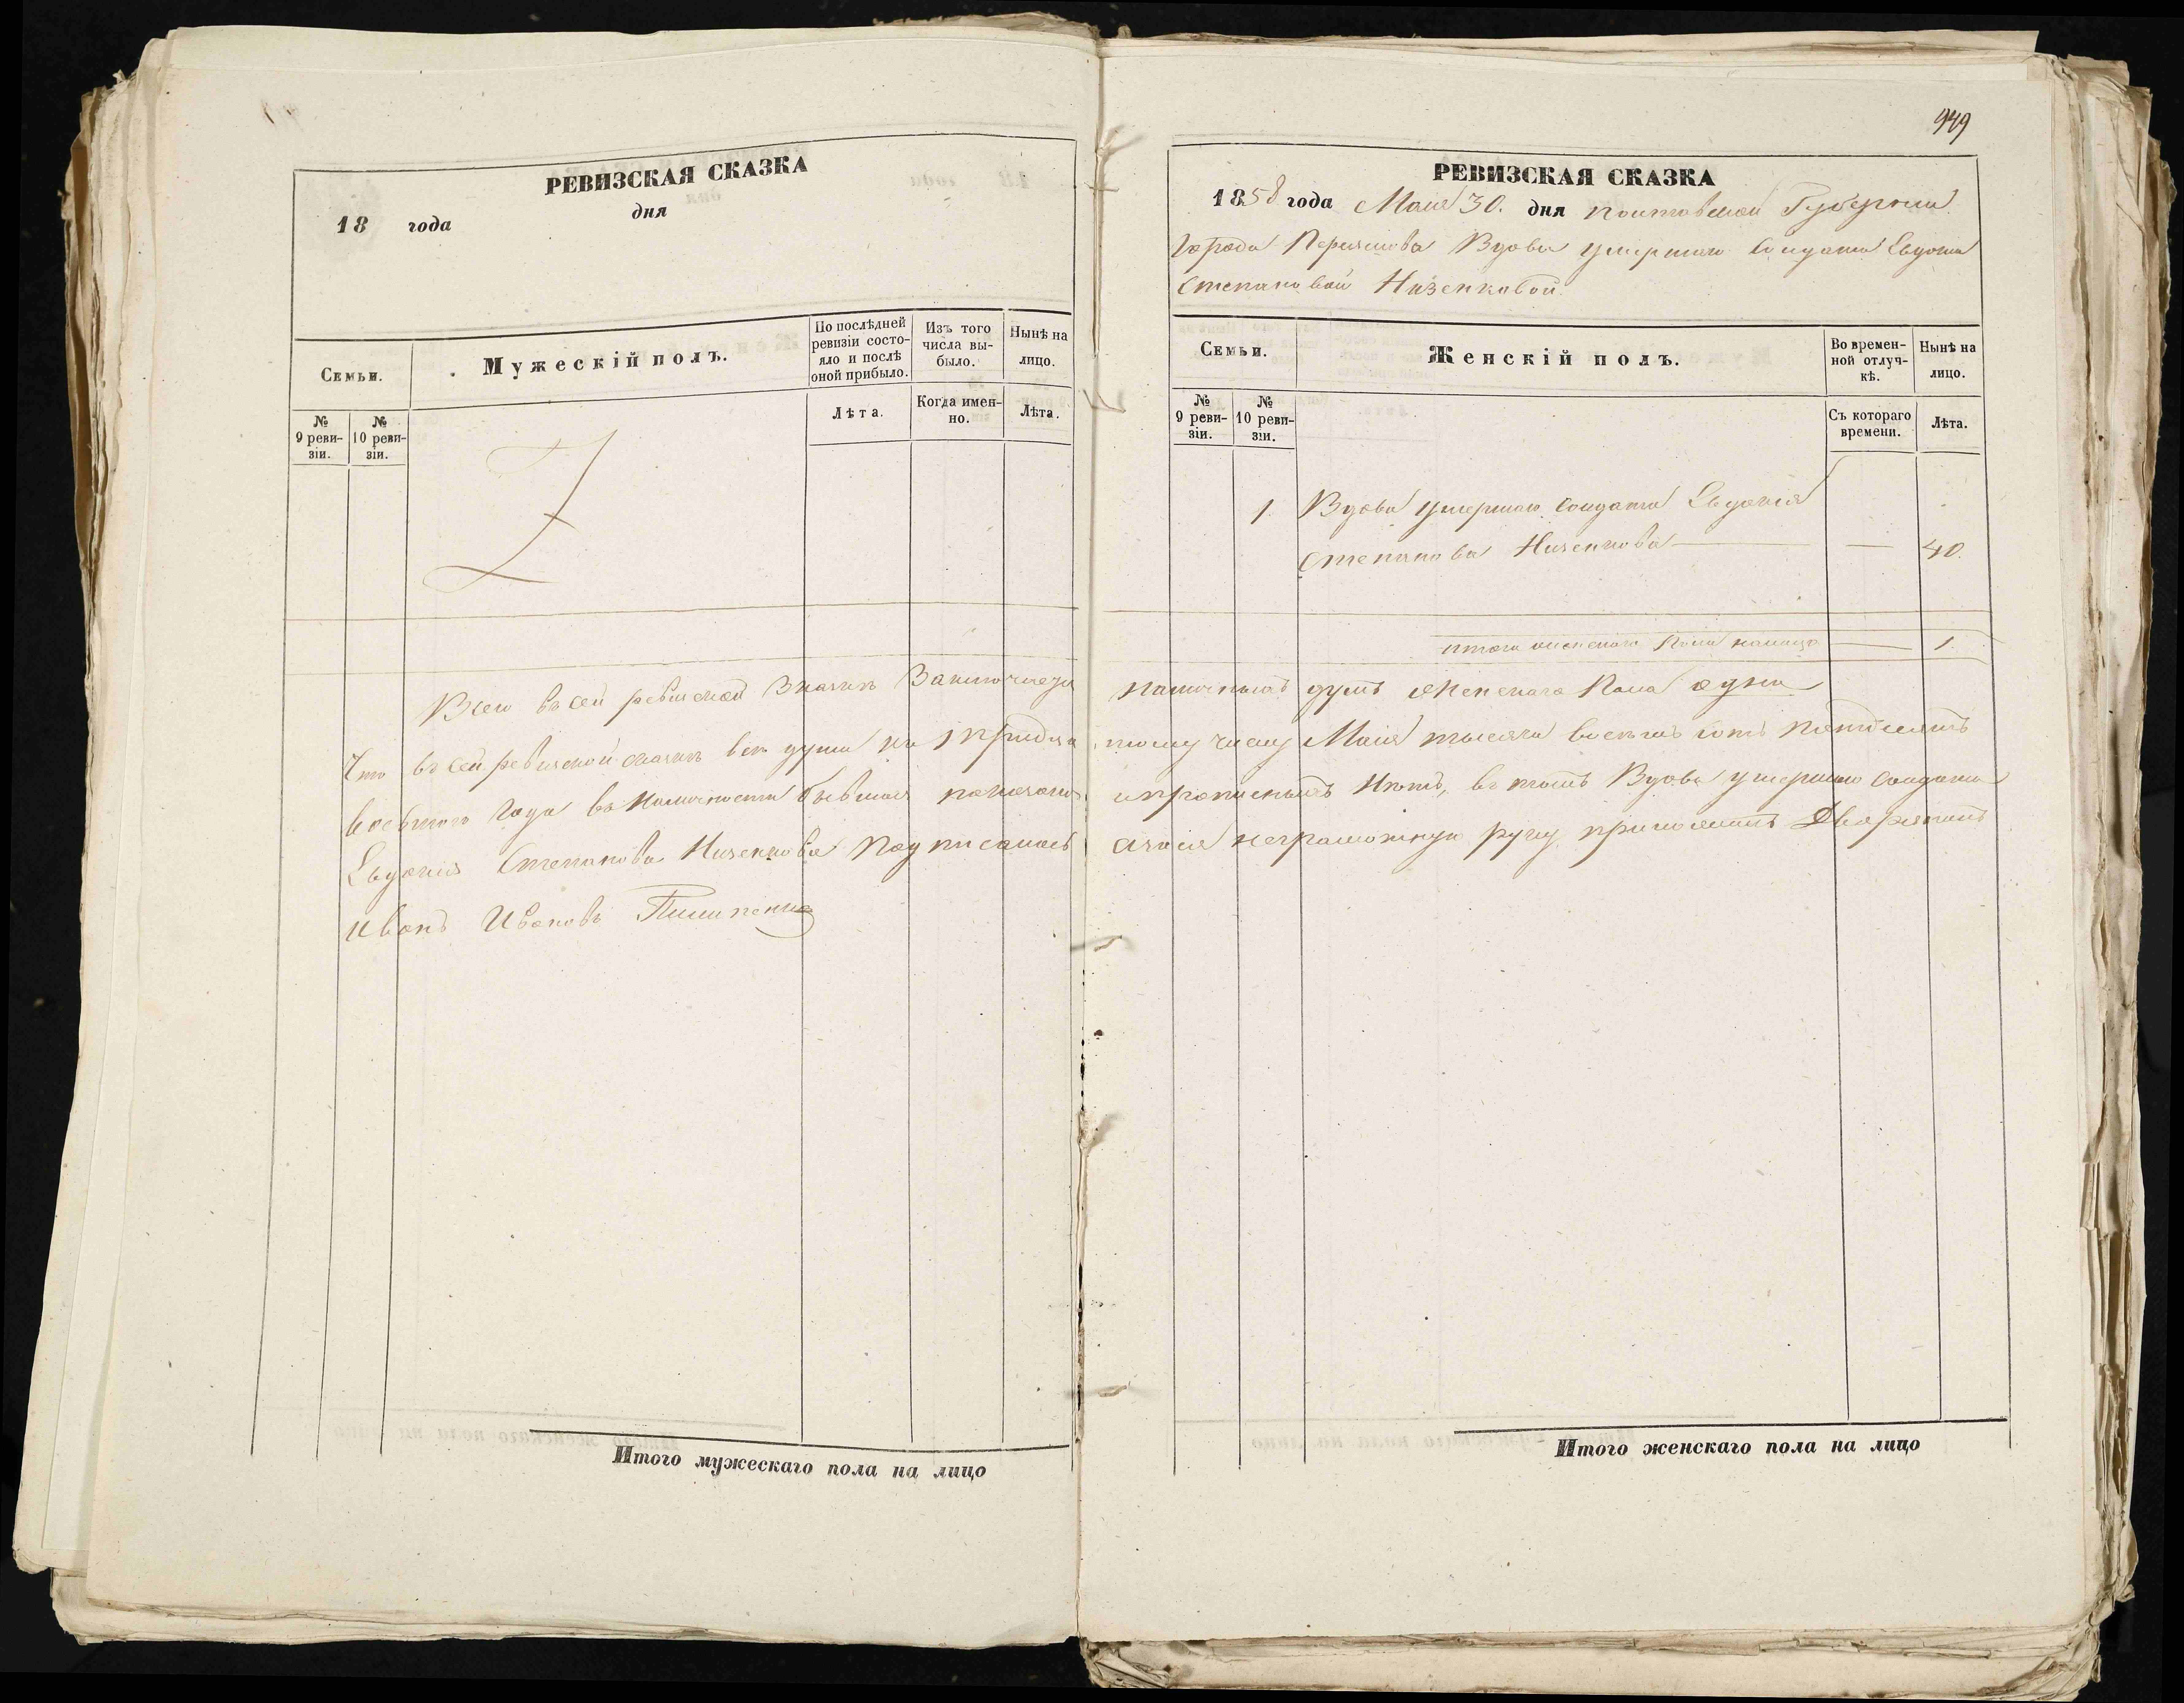 РЕВИЗСКАЯ СКАЗКА
18 года дня
Семьи.
Мужескій полъ.
По послѣдней ревизіи состояло и послѣ оной прибыло.
Изъ того числа выбыло.
Нынѣ на лицо.
№ 9 ревизіи.
№ 10 ревизіи.
Лѣта.
Когда именно.
Лѣта.
Итого мужескаго пола на лицо
949
РЕВИЗСКАЯ СКАЗКА
1858 года Маия 30. дня Полтавской Губерніи
города Вдова умершаго солдата
Степановой Низенковой
Семьи.
Женскій полъ.
Во временной отлучкѣ.
Нынѣ на лицо.
№ 9 ревизіи.
№ 10 ревизіи.
Съ котораго времени.
Лѣта.
1 Вдова умершаго солдата Евдокия
Степанова Низенкова — — 40.
итого женскаго пола налицо — 1
Всего въ сей ревизской заключается наличныхъ душъ женскаго пола одна
Что въ сей ревизской сказкѣ все души по тому числу Маия тысяча восемь сотъ пятдесятъ
восьмого года въ наличности бывшая показана и прописныхъ нѣтъ, въ томъ Вдова умершаго солдата
Евдокия Степанова Низенкова подписалась а за неграмотную руку приложилъ Дворянинъ
Иванъ Ивановъ
Итого женскаго пола на лицо